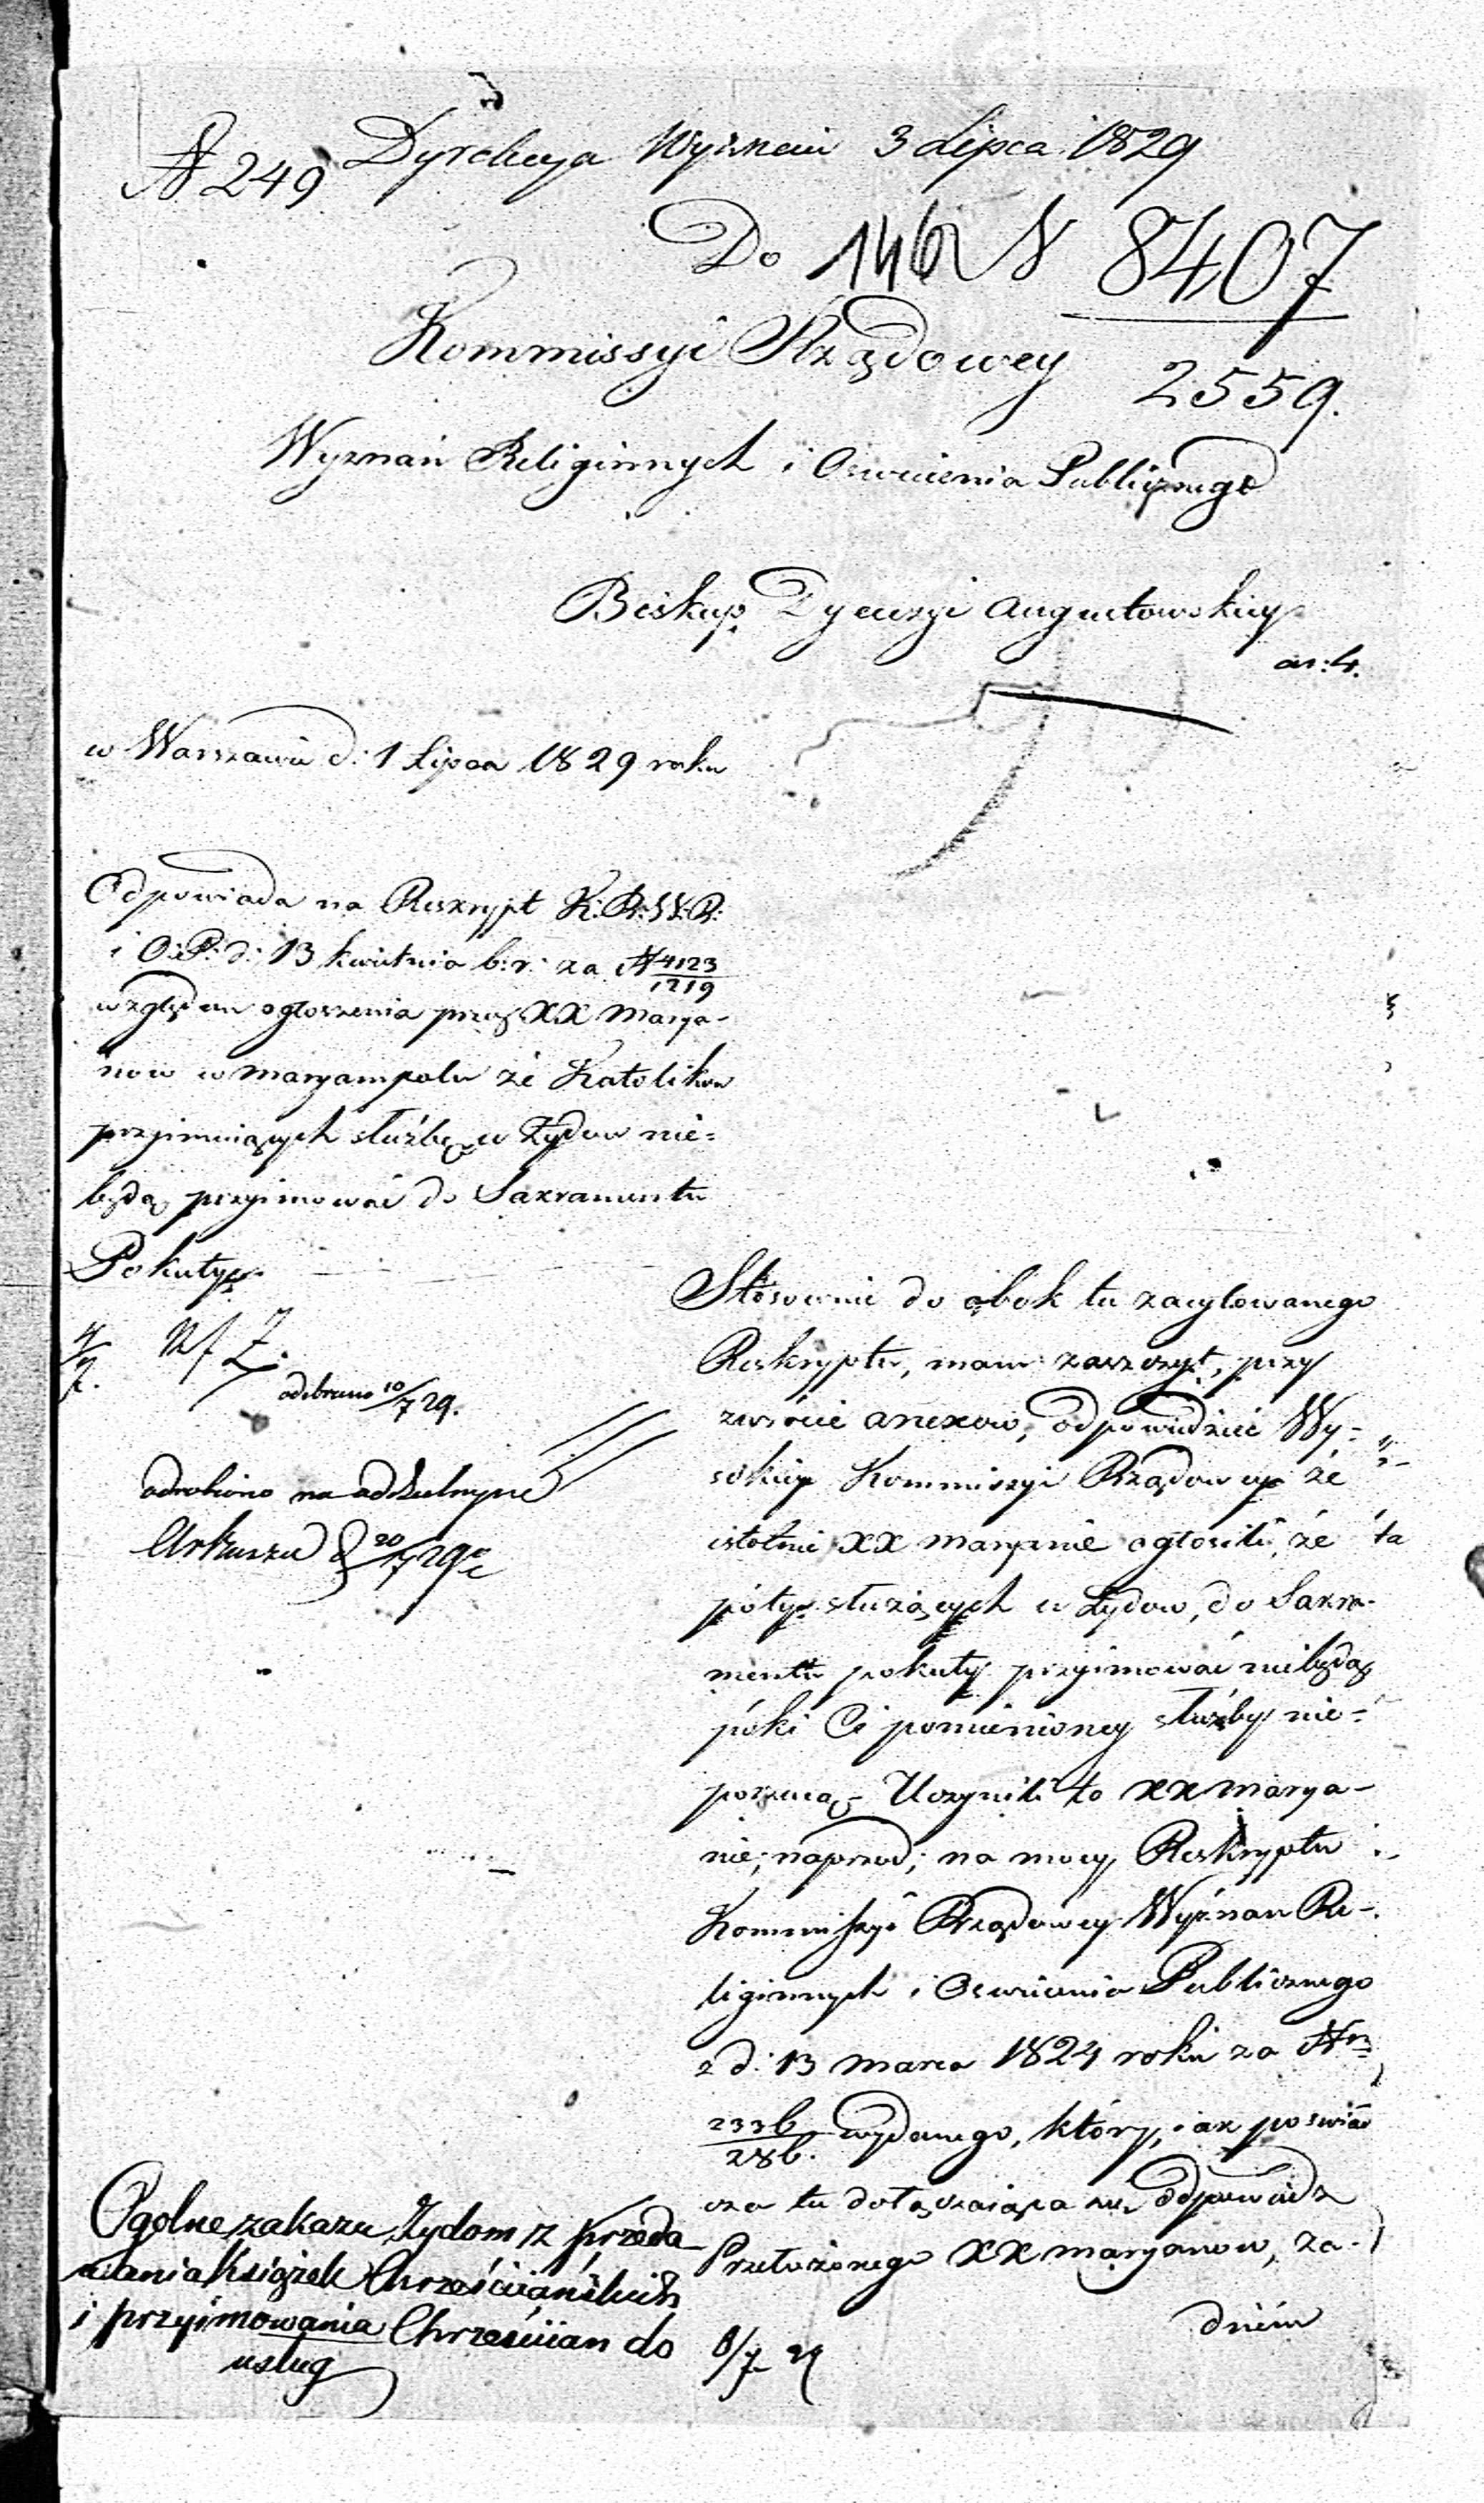 N 249 Dyrekcya Wyznań 3 Lipca 1829
Do 146 N 8407
2559.
Kommissyi Rządowey
Wyznań Religiinych i Oswiecenia Publicznego
Biskup Dyecezyi Augustowskiey
w Warszawie d: 1 Lipca 1829 roku
Odpowiada na Reskrypt K: R: W: R:
i O: P: d: 13 kwietnia b: r: za N 4123/1219
względem ogłoszenia przez XX Marya-
now w Maryampolu że Katolikow
przyimuiących służbę u Żydow nie=
będą przyimować do Sakramentu
Pokuty
odebrano 10/7 29.
odrobiono na oddzielnym
Arkuszu 20/7 29
Stosownie do obok tu zacytowanego
Reskryptu, mam zaszczyt, przy
zwrócie anexow, odpowiedzieć Wy=
sokiey Kommissyi Rządowey że
istotnie XX Maryanie ogłosili, że
póty służących u Żydow, do Sakra-
mentu pokuty przyimować niebędą
póki Ci pomienioney służby nie=
porzucą – Uczynili to XX Marya-
nie; naprzod; na mocy Reskryptu
Kommissyi Rządowey Wyznan Re-
ligiinych i Oswiecenia Publicznego
z d: 13 marca 1824 roku za Nr
2336/286. wydanego, który, iak poswiad
cza tu dołączaiąca się odpowiedz
Przełożonego XX Maryanow, za-
dniem
Ogolne zakazu Żydom z przeda
wania Książek Chrześciańskich
i przyimowania Chrześciian do
usług
8/7 29